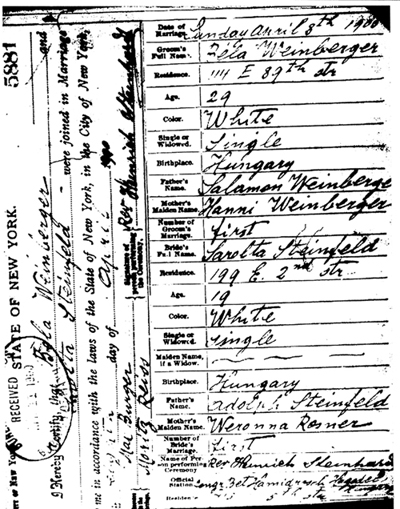 5881
STATE OF NEW YORK.
RECEIVED
I Hereby Certify, that Béla Weinberger and
Sarolta Steinfeld were joined in Marriage
in accordance with the laws of the State of New York, in the City of New York,
day of April 1900
Signature of person performing the Ceremony. Rev. Heinrich Steinhard
Max Burger
Moritz Reiss
Date of Marriage. Sunday April 8th 1900
Groom's Full Name. Béla Weinberger
Residence. E 89th str
Age. 29
Color. White
Single or Widowed. Single
Birthplace. Hungary
Father's Name. Salamon Weinberger
Mother's Maiden Name. Hanni Weinberger
Number of Groom's Marriage. first
Bride's Full Name. Sarolta Steinfeld
Residence. 199 E. 2nd str
Age. 19
Color. White
Single or Widowed. single
Maiden Name, if a Widow.
Birthplace. Hungary
Father's Name. Adolph Steinfeld
Mother's Maiden Name. Weronna Rosner
Number of Bride's Marriage. first
Name of Person performing Ceremony Rev Heinrich Steinhard
Official Station Congr. Bet Hamidrasch
Residence str